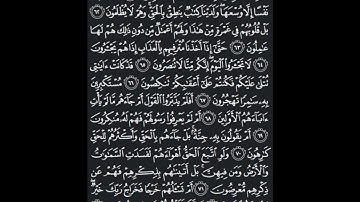 نَفْسًا إِلَّا وُسْعَهَا وَلَدَيْنَا كِتَٰبٌ يَنطِقُ بِٱلْحَقِّ وَهُمْ لَا يُظْلَمُونَ ٦٢
بَلْ قُلُوبُهُمْ فِى غَمْرَةٍ مِّنْ هَٰذَا وَلَهُمْ أَعْمَٰلٌ مِّن دُونِ ذَٰلِكَ هُمْ لَهَا
عَٰمِلُونَ ٦٣ حَتَّىٰٓ إِذَآ أَخَذْنَا مُتْرَفِيهِم بِٱلْعَذَابِ إِذَا هُمْ يَجْـَٔرُونَ
٦٤ لَا تَجْـَٔرُوا۟ ٱلْيَوْمَ إِنَّكُم مِّنَّا لَا تُنصَرُونَ ٦٥ قَدْ كَانَتْ ءَايَٰتِى
تُتْلَىٰ عَلَيْكُمْ فَكُنتُمْ عَلَىٰٓ أَعْقَٰبِكُمْ تَنكِصُونَ ٦٦ مُسْتَكْبِرِينَ
بِهِۦ سَٰمِرًا تَهْجُرُونَ ٦٧ أَفَلَمْ يَدَّبَّرُوا۟ ٱلْقَوْلَ أَمْ جَآءَهُم مَّا لَمْ يَأْتِ
ءَابَآءَهُمُ ٱلْأَوَّلِينَ ٦٨ أَمْ لَمْ يَعْرِفُوا۟ رَسُولَهُمْ فَهُمْ لَهُۥ مُنكِرُونَ
٦٩ أَمْ يَقُولُونَ بِهِۦ جِنَّةٌۢ بَلْ جَآءَهُم بِٱلْحَقِّ وَأَكْثَرُهُمْ لِلْحَقِّ
كَٰرِهُونَ ٧٠ وَلَوِ ٱتَّبَعَ ٱلْحَقُّ أَهْوَآءَهُمْ لَفَسَدَتِ ٱلسَّمَٰوَٰتُ
وَٱلْأَرْضُ وَمَن فِيهِنَّ بَلْ أَتَيْنَٰهُم بِذِكْرِهِمْ فَهُمْ عَن
ذِكْرِهِم مُّعْرِضُونَ ٧١ أَمْ تَسْـَٔلُهُمْ خَرْجًا فَخَرَاجُ رَبِّكَ خَيْرٌ